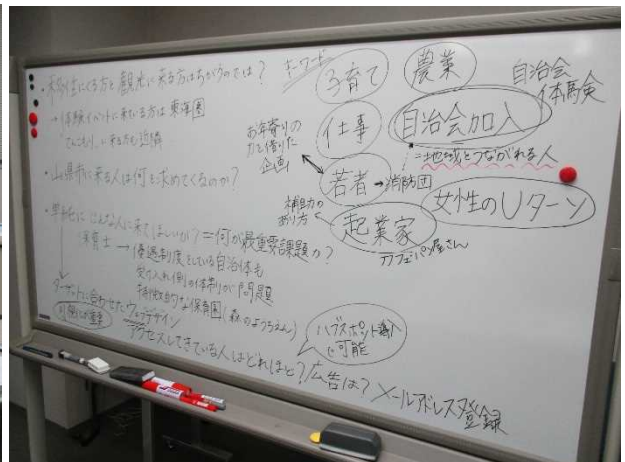 ・移住にくる方と観光に来る方はちがうのでは？
→体験イベントに来ている方は東海圏
「てんこもり」に来る方も近隣
・山県市に来る人は何を求めてくるのか？
・単純にどんな人に来てほしいか？＝何が最重要課題か？
保育士→優遇制度をしている自治体も
受け入れ側の体制が問題
特徴的な保育園（森のようちえん）
ターゲットに合わせたウェブデザイン
アクセスしてきている人はどれほど？/広告は？メールアドレス登録
ハブスポット導入
で可能
キーワード
子育て
農業
仕事
自治会加入
自治会
体験
＝地域とつながれる人
お年寄りの
力を借りた
企画
若者→消防団
補助の
あり方
起業家
カフェ・パン屋さん
女性のUターン